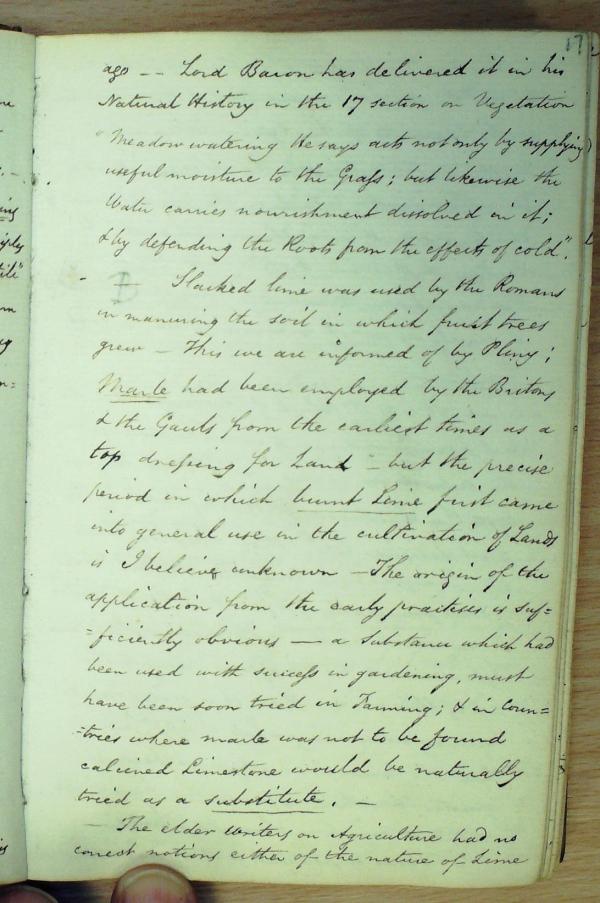 17
ago -- Lord Bacon has delivered it in his
Natural History in the 17 section on Vegetation
"Meadow watering He says acts not only by supplying
useful moisture to the Grass; but likewise the
Water carries nourishment dissolved in it;
& by defending the Roots from the effects of cold".
B — Slacked lime was used by the Romans
in manuring the soil in which fruit trees
grew — This we are informed of by Pliny;
Marle had been employed by the Britons
& the Gauls from the earliest times as a
top dressing for Land — but the precise
period in which burnt Lime first came
into general use in the cultivation of Lands
is I believe unknown — The origin of the
application from the early practises is suf=
=ficiently obvious — a substance which had
been used with success in gardening, must
have been soon tried in Farming; & in Coun=
=tries where marle was not to be found
calcined Limestone would be naturally
tried as a substitute. —
— The elder Writers on Agriculture had no
correct notions either of the nature of Lime